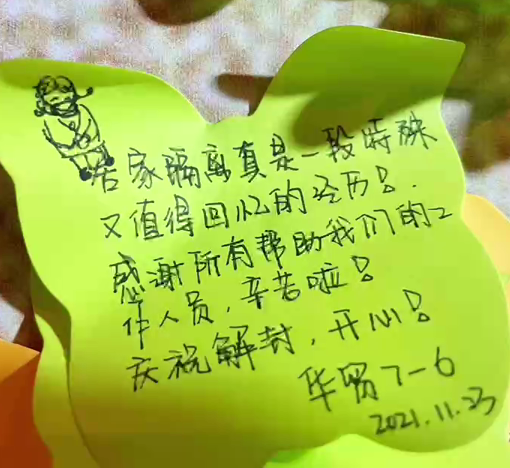 居家隔离真是一段特殊
又值得回忆的经历!.
感谢所有帮助我们的工
作人员，辛苦啦!
庆祝解封，开心!
华贸7-6
2021.11.23